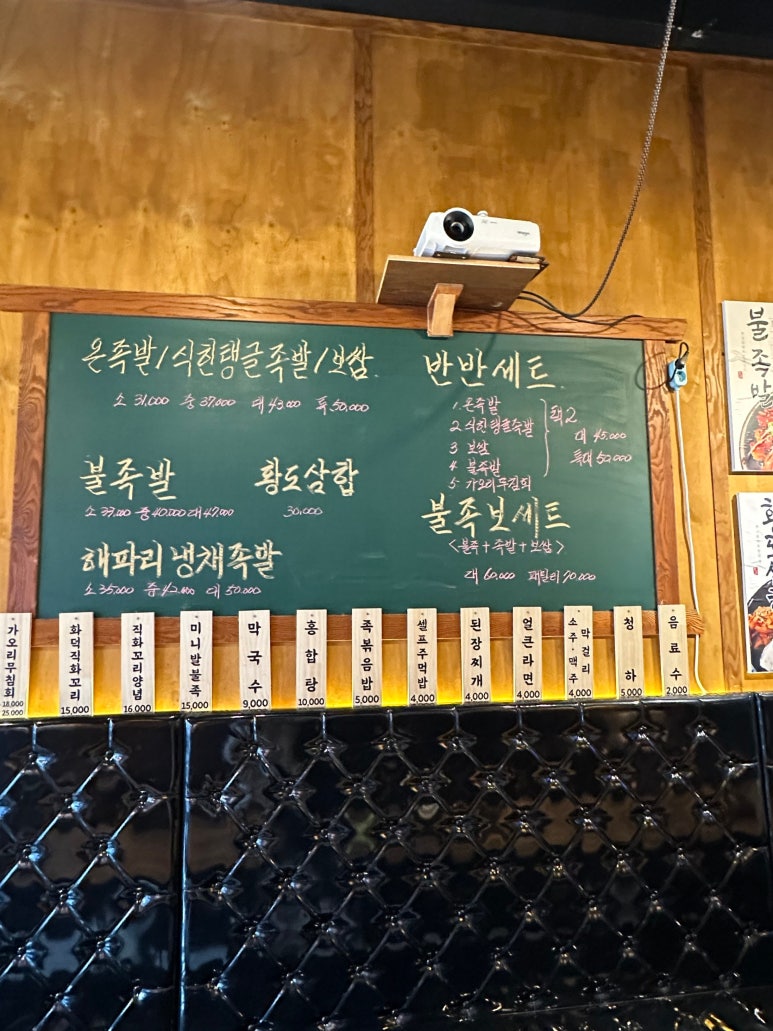 온족발/식힌탱글족발/보쌈
소 31,000 중 37,000 대 43,000 특 50,000
불족발
소 37,000 중 40,000 대 47,000
황도삼합
30,000
해파리냉채족발
소 35,000 중 42,000 대 50,000
반반세트
1. 온족발
2 식힌탱글족발
3 보쌈
4 불족발
5 가오리무침회
택2
대 45,000
특대 52,000
불족보세트
<불족+족발+보쌈>
대 60,000 패밀리 70,000
가오리무침회
18,000
25,000
화덕직화꼬리
15,000
직화꼬리양념
16,000
미니발불족
15,000
막국수
9,000
홍합탕
10,000
족볶음밥
5,000
셀프주먹밥
4,000
된장찌개
4,000
얼큰라면
4,000
막걸리
소주·맥주
4,000
청하
5,000
음료수
2,000
불족발